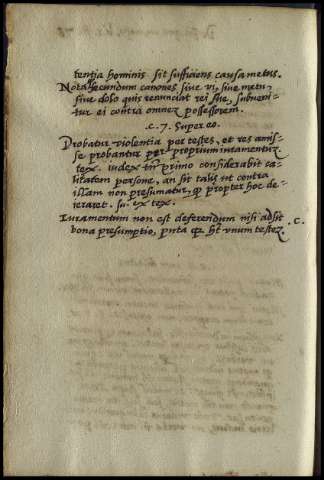 tentia hominis sit sufficiens causa metus.
Nota secundum canones siue vi, siue metu,
siue dolo quis renunciat rei sue, subueni-
tur ei contra omnes possessorem.
.c. 7. Super eo.
Probatur violentia per testes, et res amis-
se probantur per proprium iuramentum
tex. iudex tñ primo considerabit ca-
litatem persone, an sit talis ut contra
illam non presumatur, qp propter hoc de-
ieraret. su. ex tex.
Iuramentum non est deferendum nisi adsit .c.
bona presumptio, puta qz ht vnum testez.